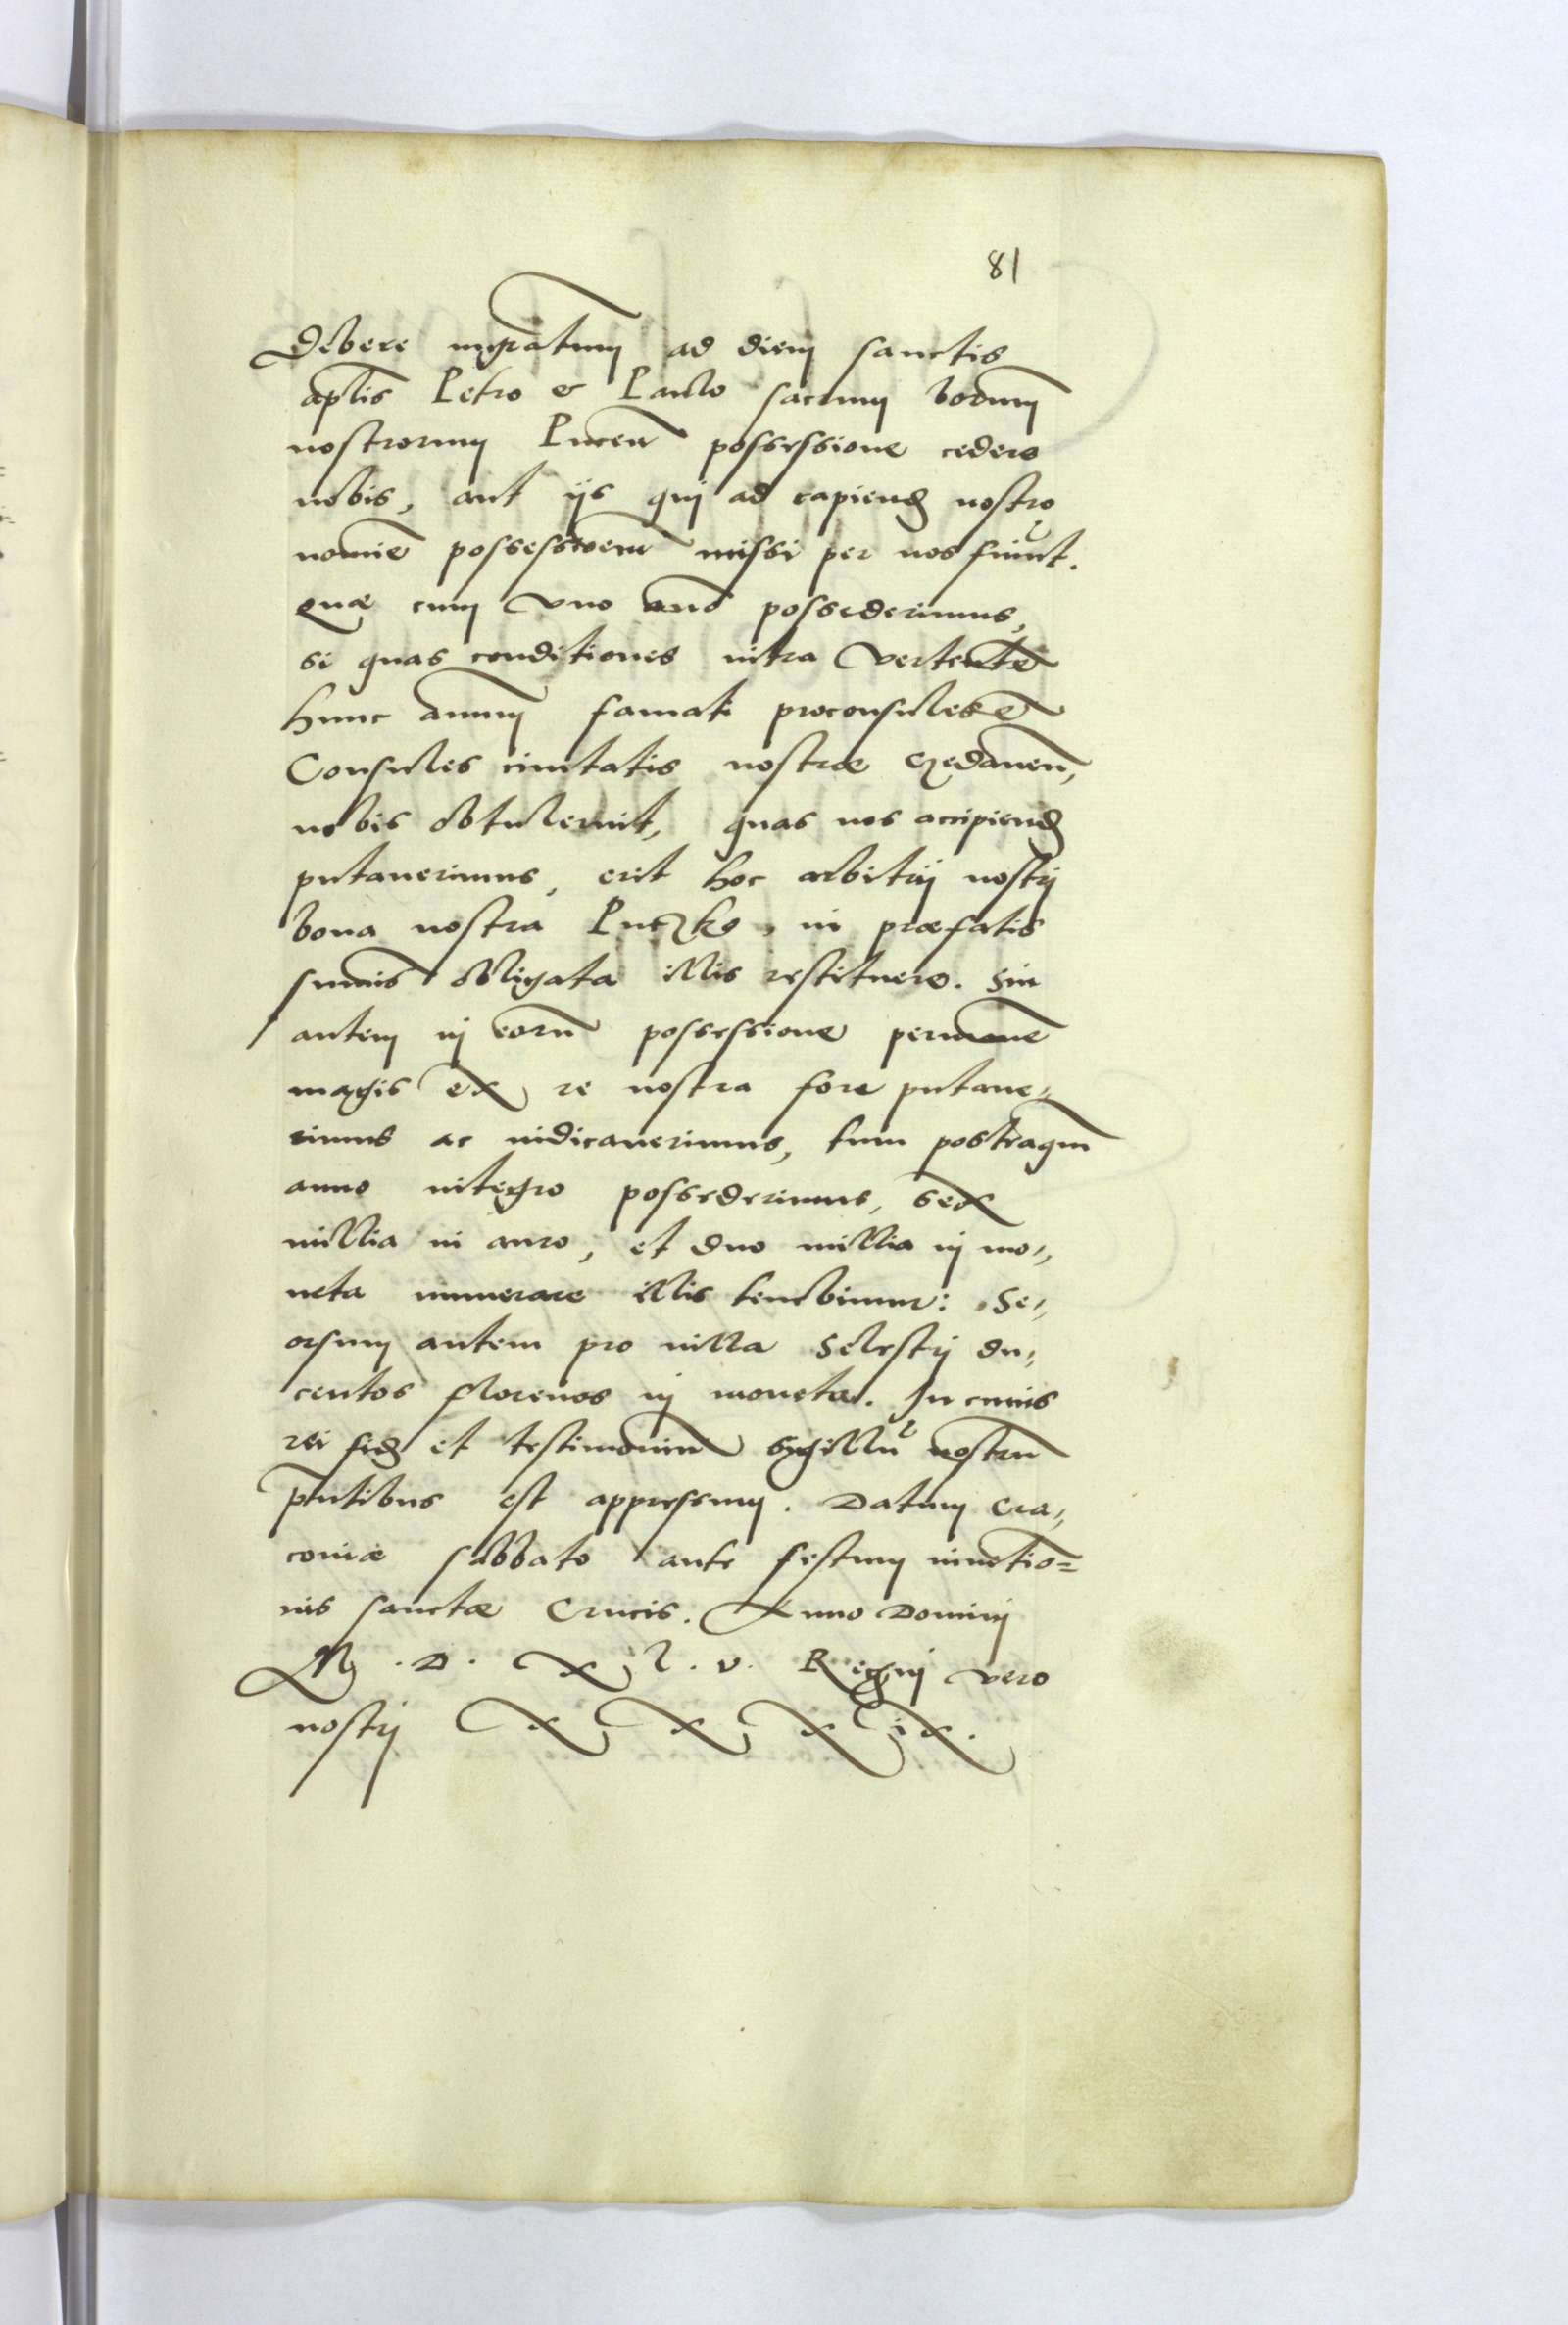 81
Debere migratum ad diem sanctis
aplis Petro & Paulo sacrum bonorum
nostrorum Pucen possessione cedere
nobis, aut ijs qui ad capiend nostro
nomie possessionem missi per nos fuerint.
Quæ cum vno anno possederimus,
si quas conditiones intra vertente
hunc annum famati proconsules et
Consules ciuitatis nostræ Gedanen,
nobis obtulerint, quas nos accipiend
putauerimus, erit hoc arbitrij nostrj
bona nostra Puczko, in præfatis
summis obligata illis restituere. Sin
autem in eoru possessione permane
magis ex re nostra fore putaue„
rimus ac iudicauerimus, tum posteaqm
anno integro possederimus, sex
millia in auro, et duo millia in mo„
neta numerare illis tenebimur: Se„
orsum autem pro villa Selestrj du„
centos florenos in moneta. In cuius
rei fid et testimoniu sygillu nostru
pntibus est appressum. Datum Cra„
couiæ sabbato ante festum inuetio=
nis sanctæ Crucis. Anno Dominj
M . D . X L . V . Regnj vero
nostrj X X X i X .